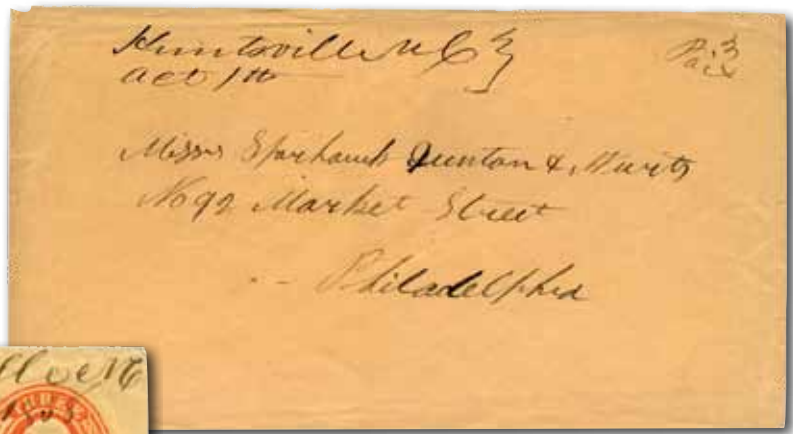 Huntsville N C
Oct 1th
Paid 3
Messrs Sparhawk Dunton & Wurts
No 92 Market Street
Philadelphia